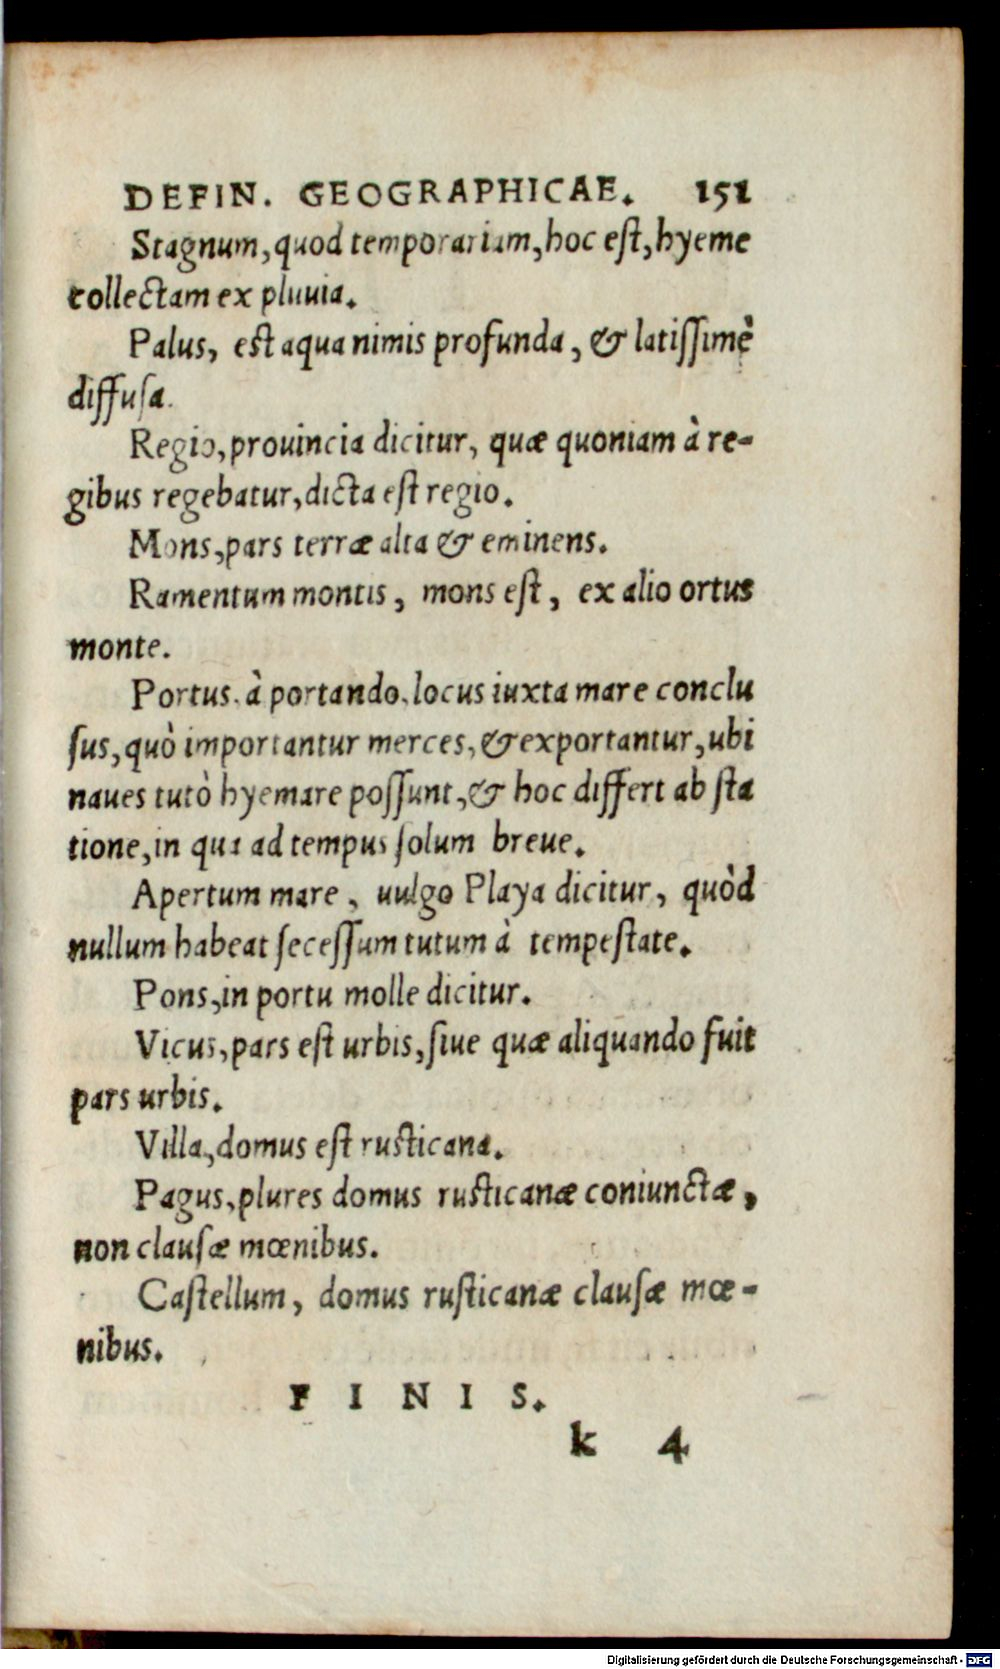 DEFIN. GEOGRAPHICAE. 151
Stagnum, quod temporariam, hoc est, hyeme
collectam ex pluuia.
Palus, est aqua nimis profunda, & latissimè
diffusa.
Regio, prouincia dicitur, quæ quoniam à re-
gibus regebatur, dicta est regio.
Mons, pars terræ alta & eminens.
Ramentum montis, mons est, ex alio ortus
monte.
Portus, à portando, locus iuxta mare conclu
sus, quò importantur merces, & exportantur, ubi
naues tutò hyemare possunt, & hoc differt ab sta
tione, in qua ad tempus solum breue.
Apertum mare, uulgo Playa dicitur, quòd
nullum habeat secessum tutum à tempestate.
Pons, in portu molle dicitur.
Vicus, pars est urbis, siue quæ aliquando fuit
pars urbis.
Villa, domus est rusticana.
Pagus, plures domus rusticanæ coniunctæ,
non clausæ mœnibus.
Castellum, domus rusticanæ clausæ mœ-
nibus.
FINIS.
k 4
Digitalisierung gefördert durch die Deutsche Forschungsgemeinschaft - DFG